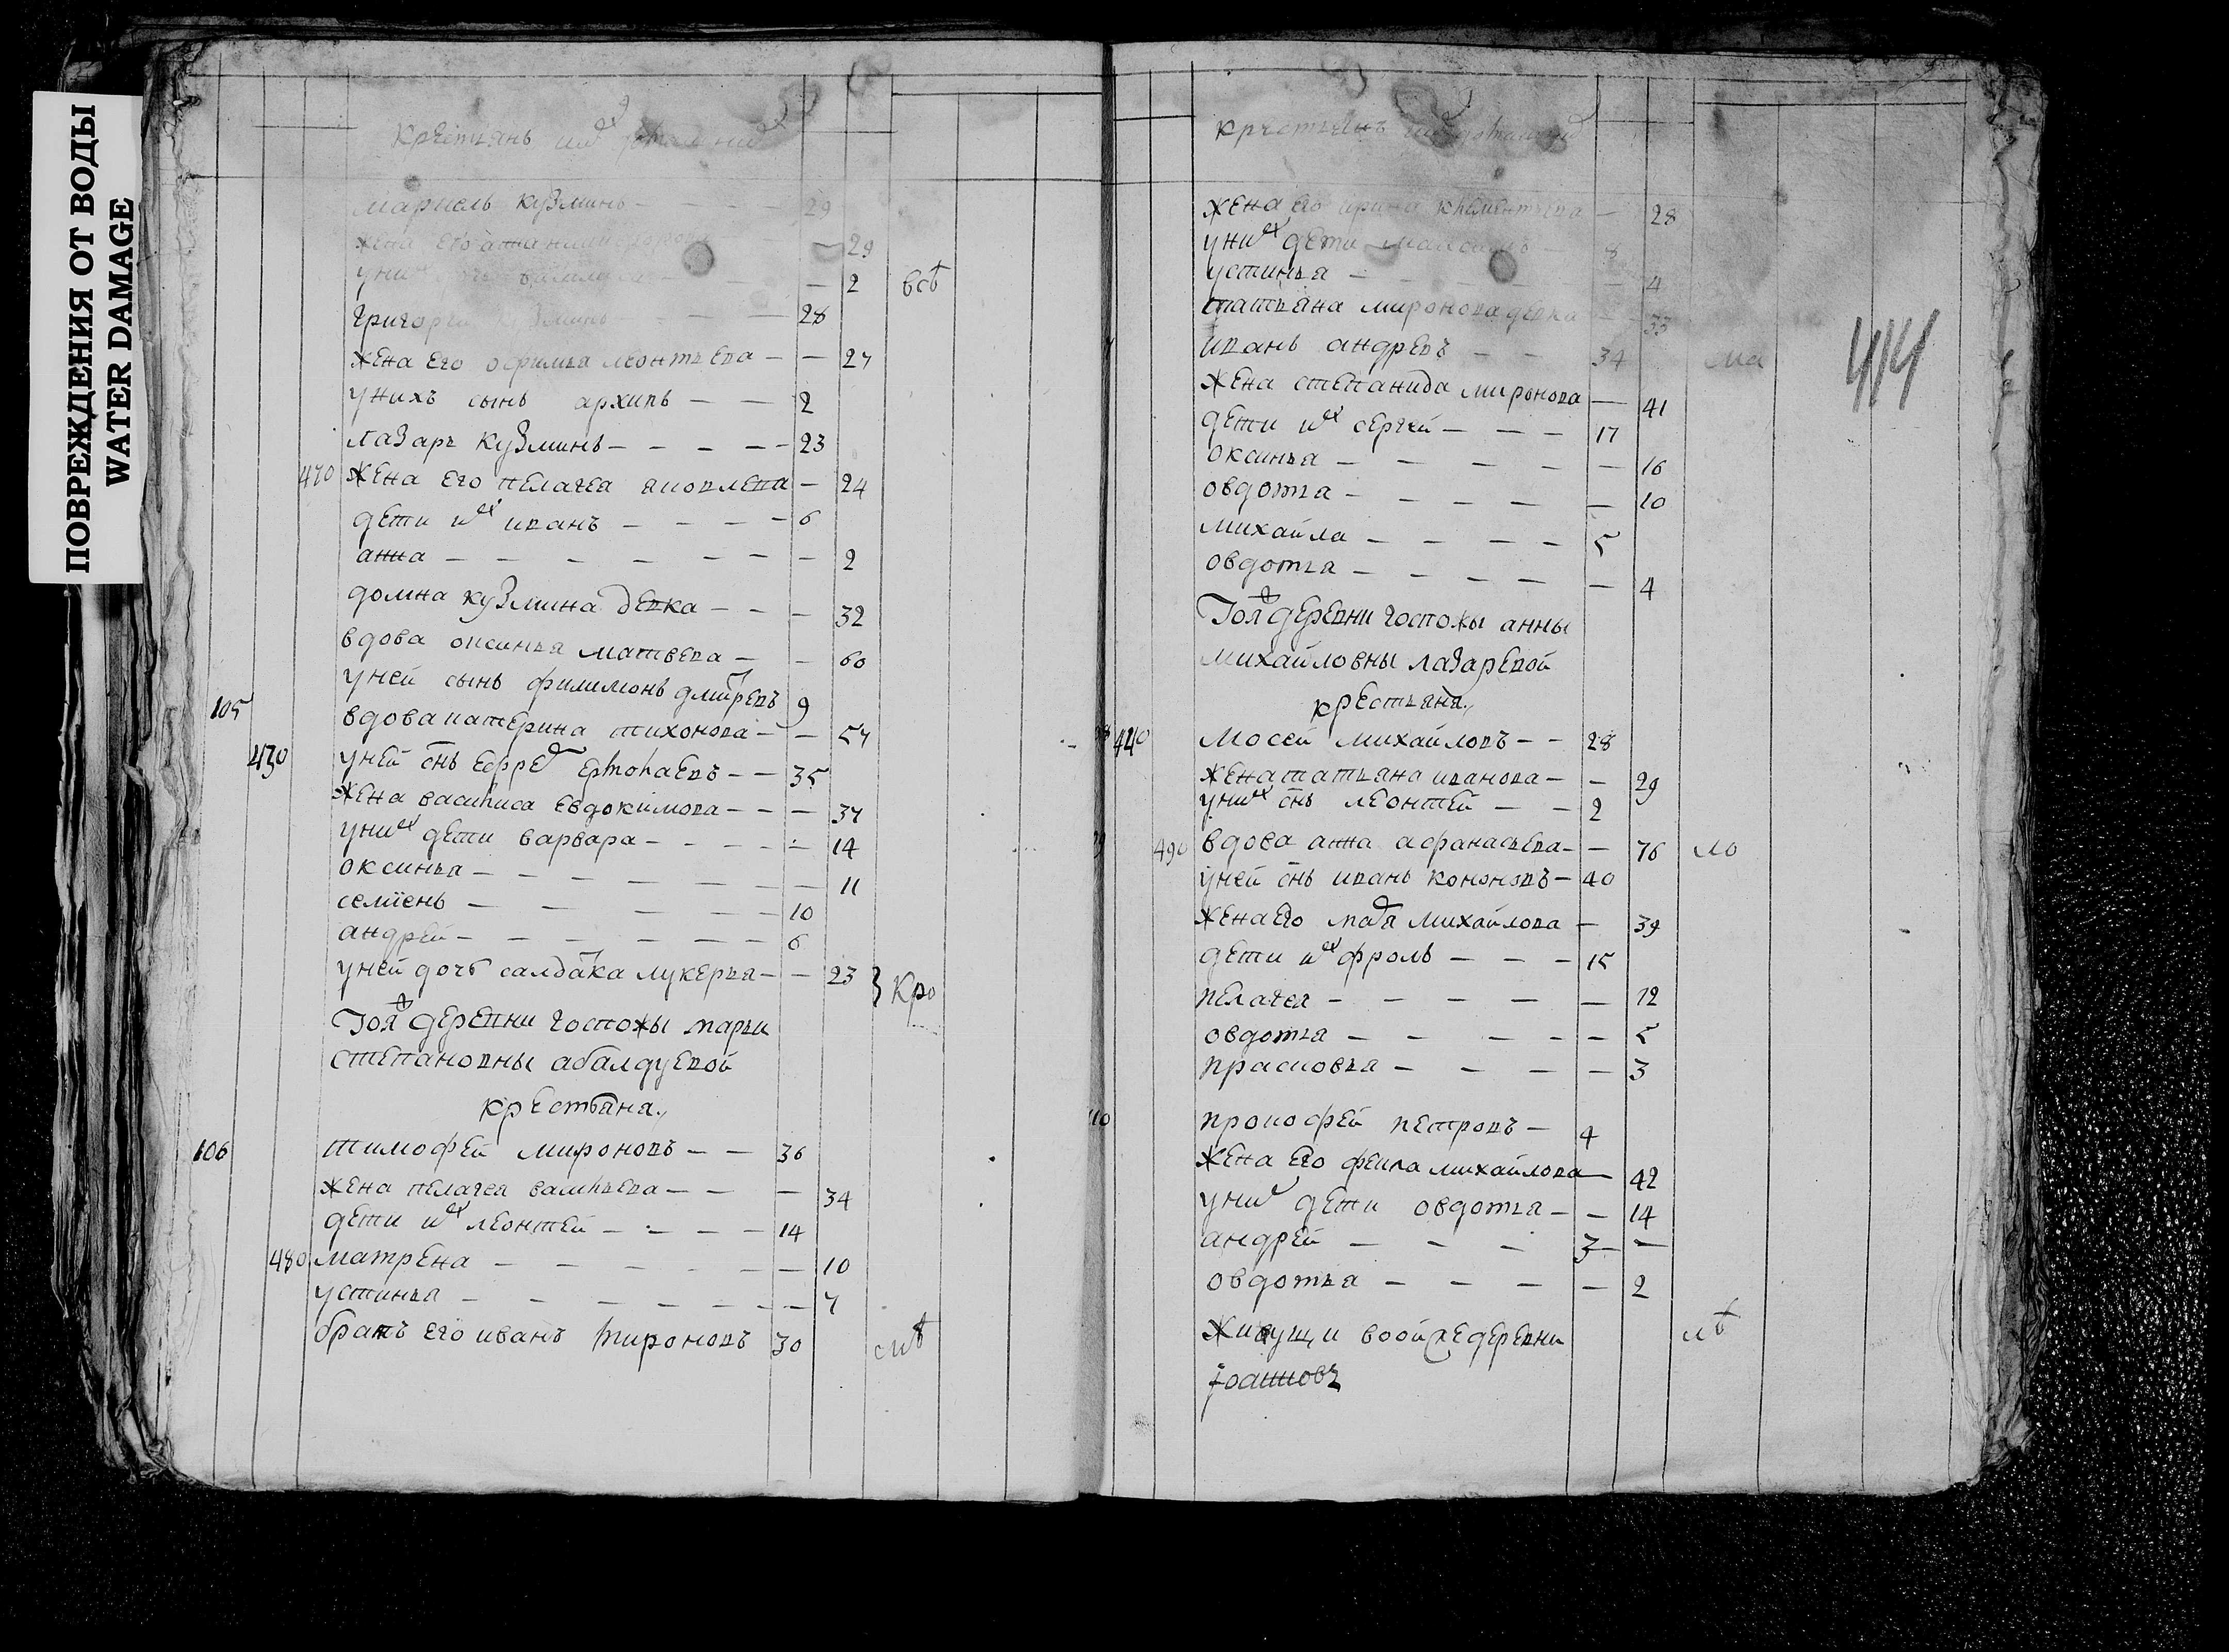 ПОВРЕЖДЕНИЯ ОТ ВОДЫ
WATER DAMAGE
крестьянъ их
кузминъ 29
жена его 29
у них 2 всѣ
григорей кузминъ 28
жена его офимья леонтьева 27
унихъ сынъ архипъ 2
лазарь кузминъ 23
470 жена его пелагея яковлева 24
дети их иванъ 6
анна 2
домна кузмина девка 32
вдова оксинья матвеева 60
уней сынъ филимонъ дмитревъ 9
105 вдова катерина тихонова 57
430 уней снъ ефрем ермолаевъ 35
жена василиса евдокимова 37
уних дети варвара 14
оксинья 11
семіенъ 10
андрей 6
уней дочь салдатка лукерья 23 кро
Тоя деревни госпожы марьи
степановны абалдуевой
крестьяна
106 тимофей мироновъ 36
жена пелагея васильева 34
дети их леонтей 14
480 матрена 10
устинья 7
братъ его иванъ мироновъ 30
крестьянъ их
жена его ирина клементьева 28
уних дети 8
устинья 4
татьяна миронова девка 33
иванъ андревъ 34 ма
414
жена степанида миронова 41
дети их сергей 17
оксинья 16
овдотья 10
михайла 5
овдотья 4
Тоя деревни госпожы анны
михайловны лазаревой
крестьяна
440 мосей михайловъ 28
жена татьяна иванова 29
уних снъ леонтей 2
490 вдова анна афанасьева 76 мо
уней снъ иванъ кононовъ 40
жена его михайлова 39
дети их фролъ 15
пелагея 12
овдотья 5
прасковья 3
110 прокофей петровъ 4
жена его фекла михайлова 42
уних дети овдотья 14
андрей 3
овдотья 2
живущи воой же деревни